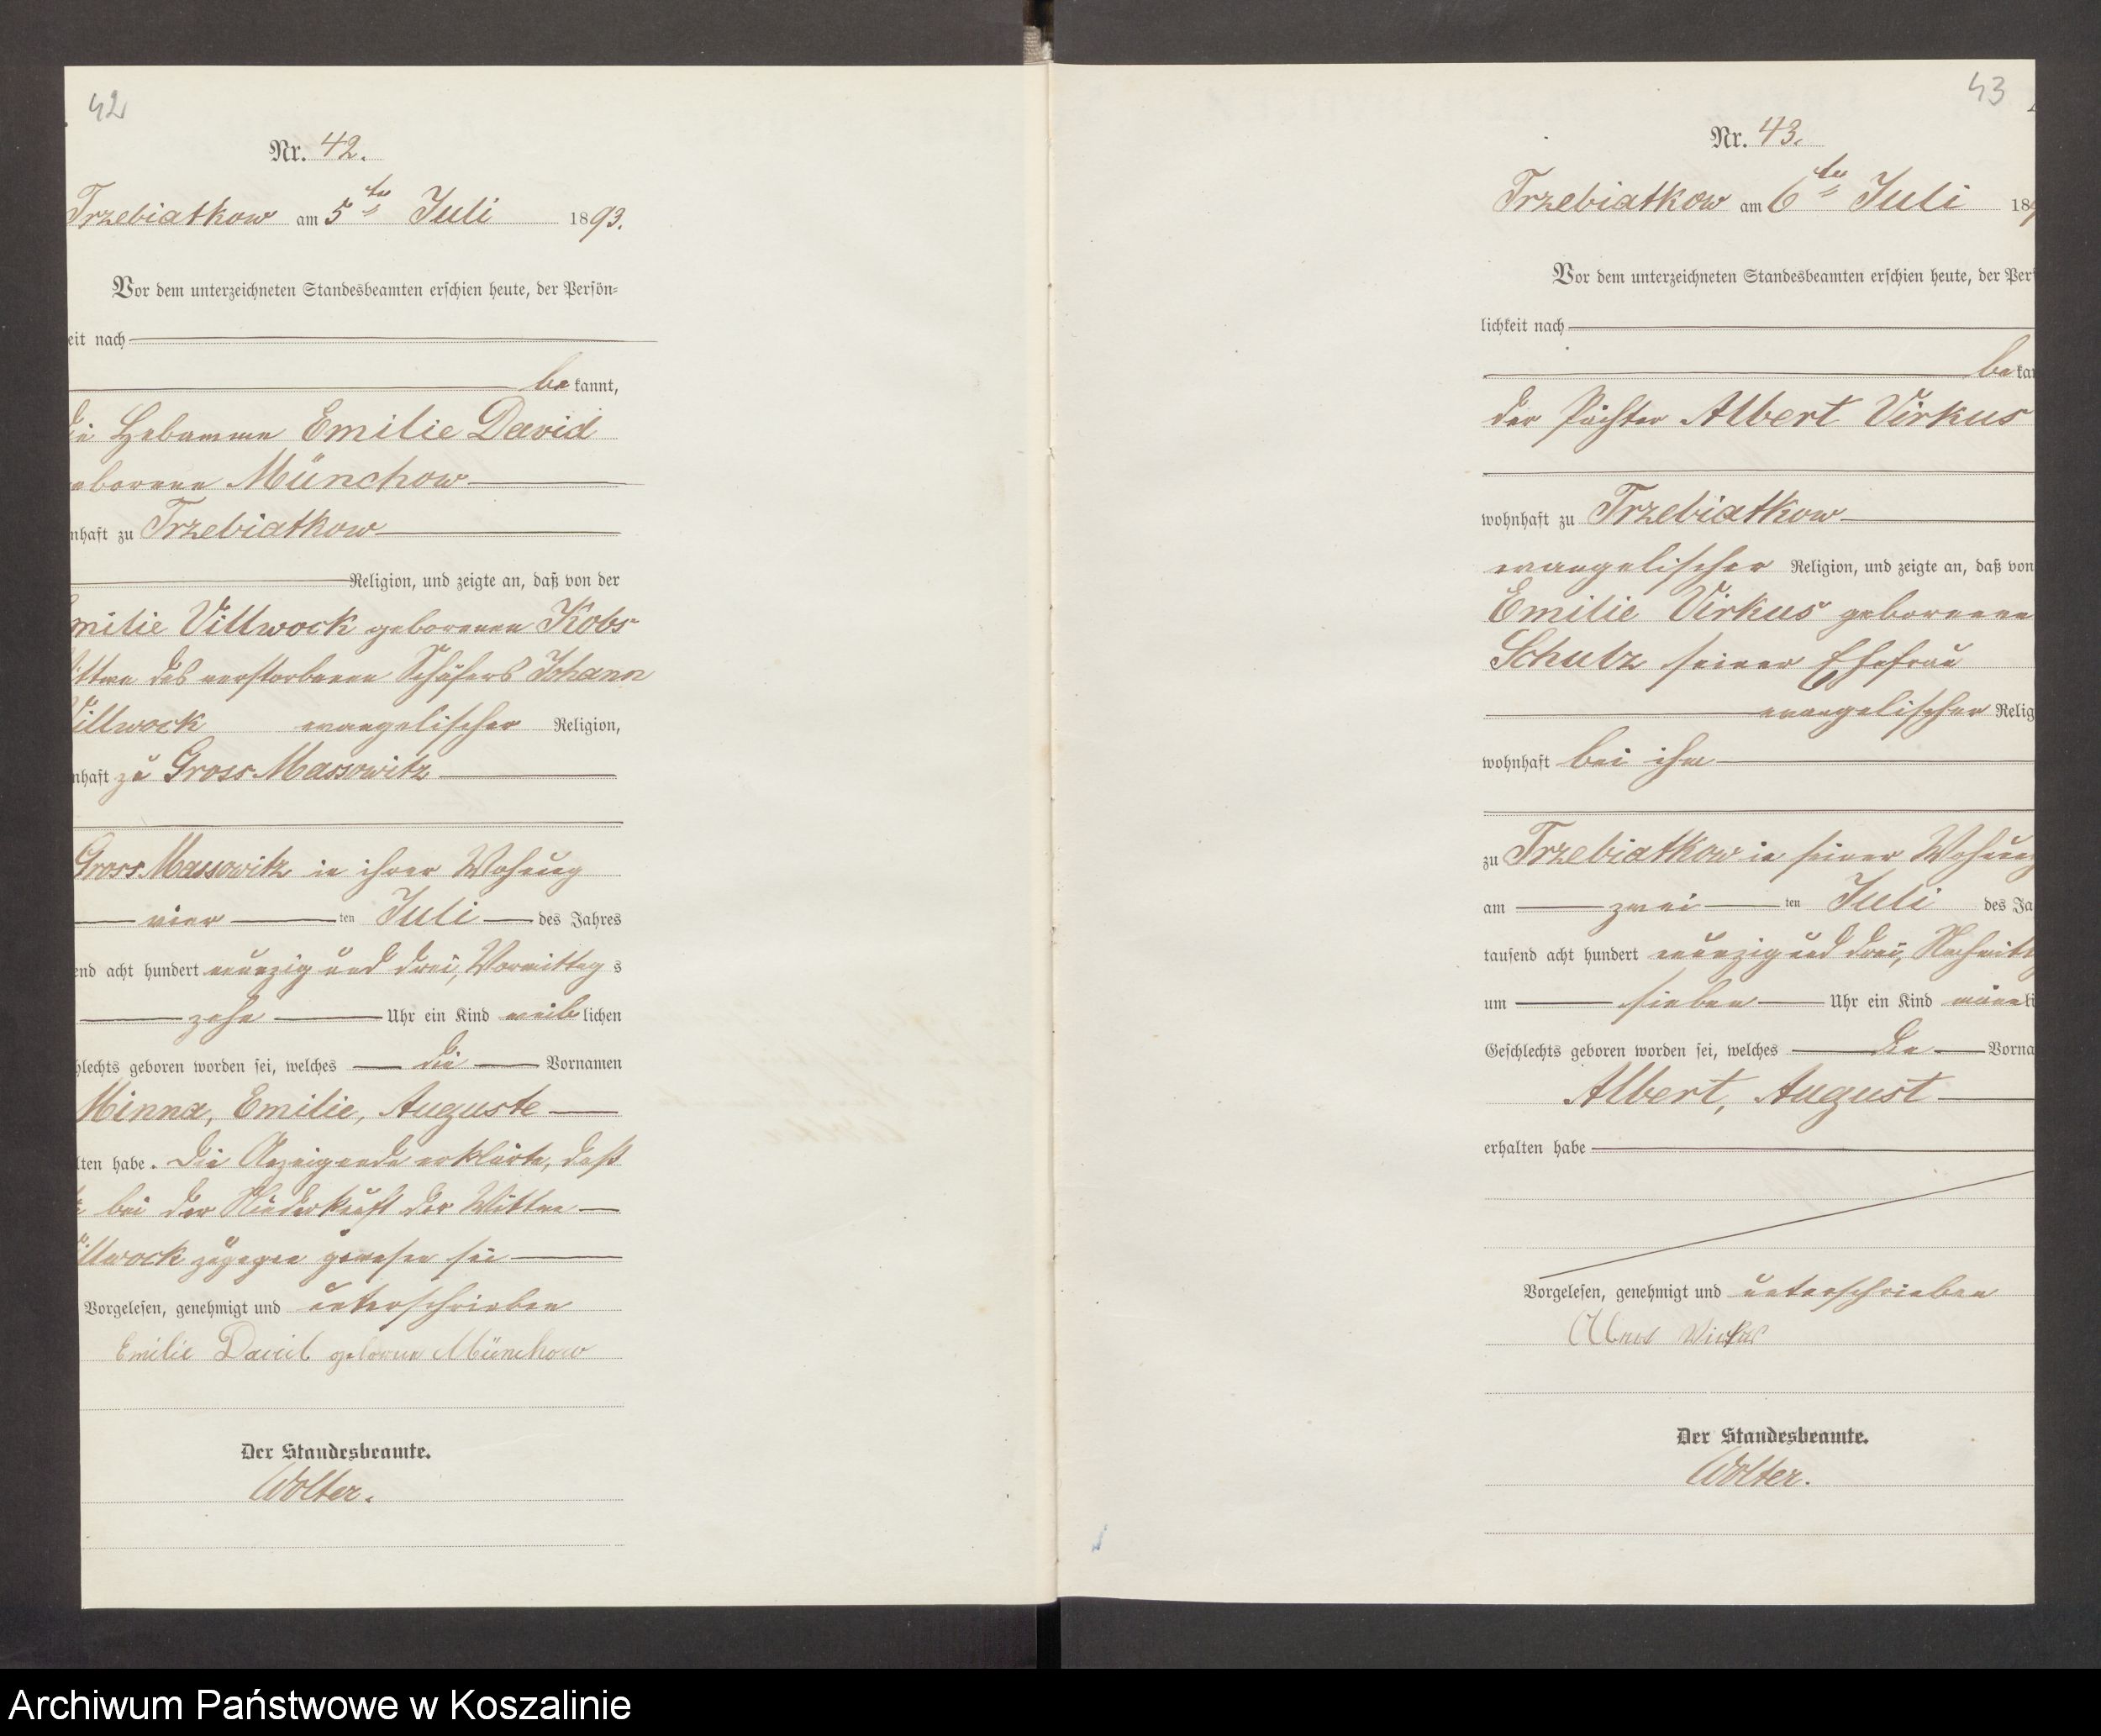 42
Nr. 42.
Trzebiatkow am 5ten Juli 1893.
Vor dem unterzeichneten Standesbeamten erschien heute, der Persön-
eit nach
be kannt,
die Hebamme Emilie David
eborene Münchow
nhaft zu Trzebiatkow
Religion, und zeigte an, daß von der
milie Villwock geborenen Kobs
ittwe des verstorbenen Schäfers Johann
Villwock evangelischer Religion,
nhaft zu Gross Massowitz
Gross Massowitz in ihrer Wohnung
vier ten Juli des Jahres
end acht hundert neunzig und drei, Vormittag s
zehn Uhr ein Kind weib lichen
hlechts geboren worden sei, welches die Vornamen
Minna, Emilie, Auguste
lten habe. Die Anzeigende erklärte, daß
bei der Niederkunft der Wittwe
illwock zugegen gewesen sei
Vorgelesen, genehmigt und unterschrieben
Emilie David geborene Münchow
Der Standesbeamte.
Wolter.
43
Nr. 43.
Trzebiatkow am 6ten Juli 189
Vor dem unterzeichneten Standesbeamten erschien heute, der Per
lichkeit nach
be kan
der Pächter Albert Virkus
wohnhaft zu Trzebiatkow
evangelischer Religion, und zeigte an, daß von
Emilie Virkus geborenen
Schulz seiner Ehefrau
evangelischer Relig
wohnhaft bei ihm
zu Trzebiatkow in seiner Wohnung
am zwei ten Juli des Ja
tausend acht hundert neunzig und drei, Nachmitt
um sieben Uhr ein Kind männ li
Geschlechts geboren worden sei, welches die Vorna
Albert, August
erhalten habe
Vorgelesen, genehmigt und unterschrieben
Der Standesbeamte.
Wolter.
Archiwum Państwowe w Koszalinie